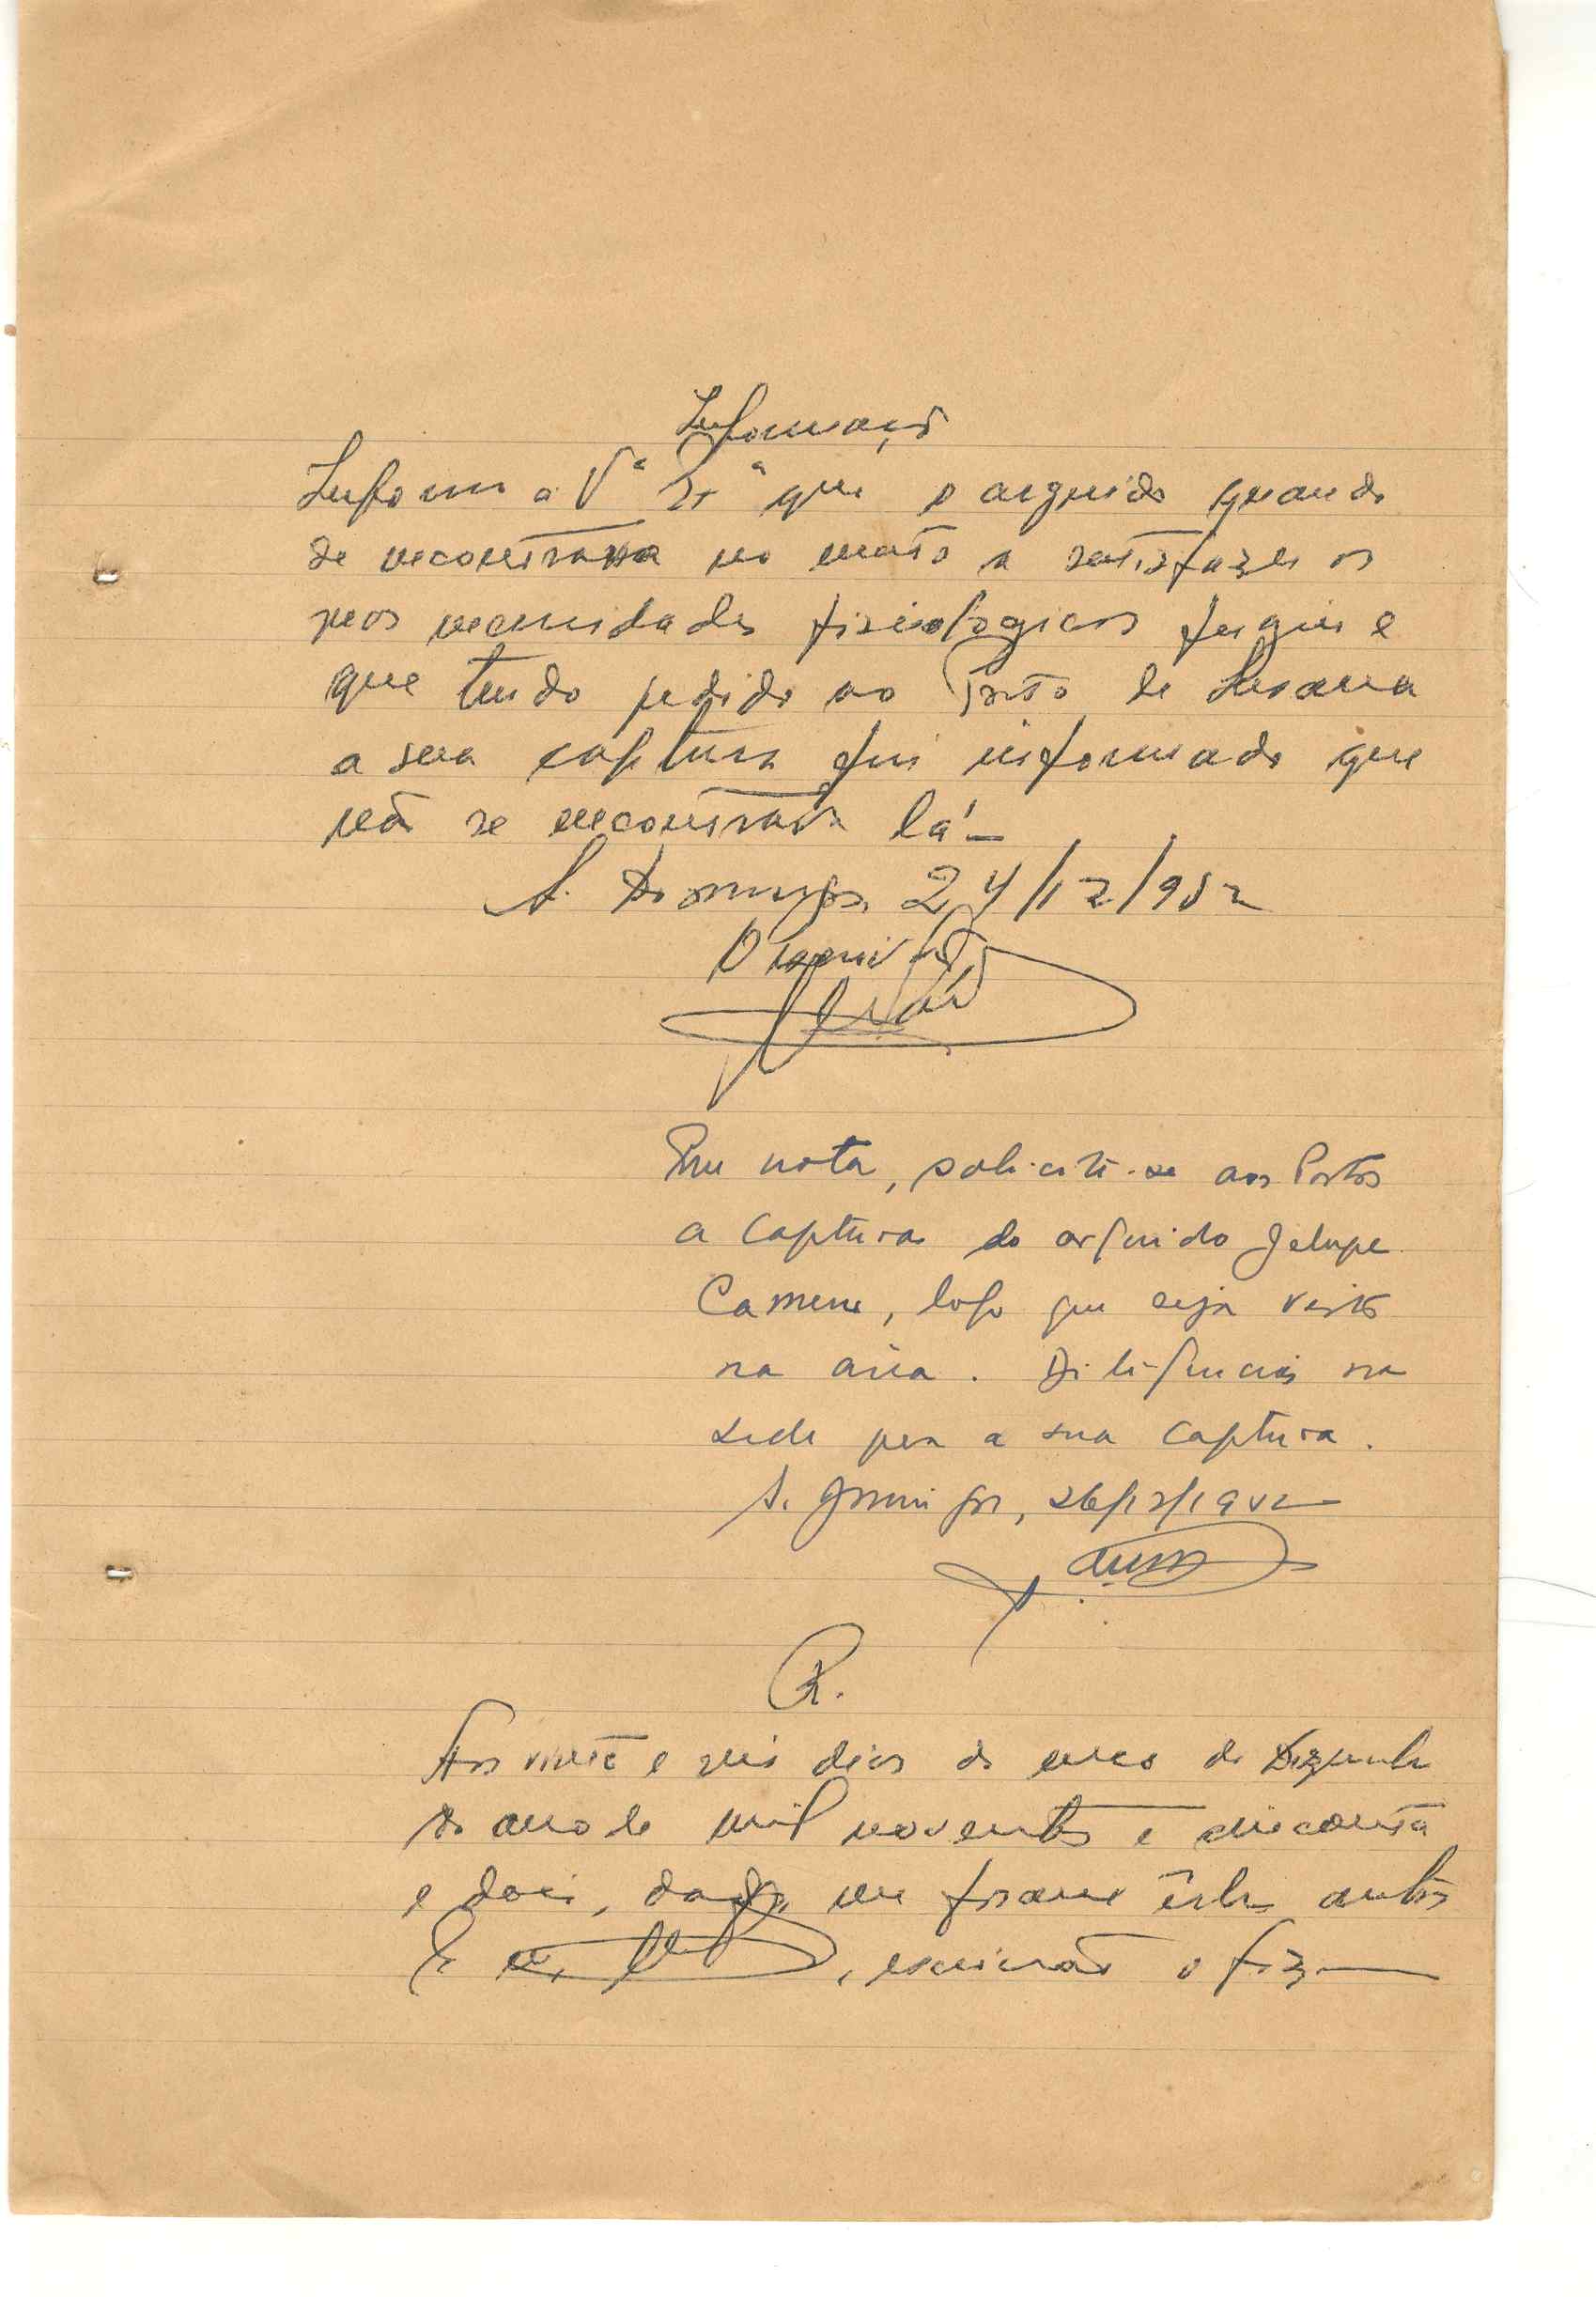 Informação
Informo a Vª Exª que o arguido quando
se encontrava no mato a satisfazer as
suas necessidades fisiologicas fugiu e
que tendo pedido ao Posto de Susana
a sua captura fui informado que
não se encontrava lá—
S. Domingos, 24/12/952
O escrivão,
Em nota, solicite-se aos Postos
a captura do arguido Jalupe
Camene, logo que seja visto
na área. Diligencias na
sede para a sua captura.
S. Domingos, 26/12/1952
R.
Aos vinte e seis dias do mês de Dezembro
do ano de mil novecentos e cincoenta
e dois, me foram êstes autos
E eu, , escrivão o fiz—